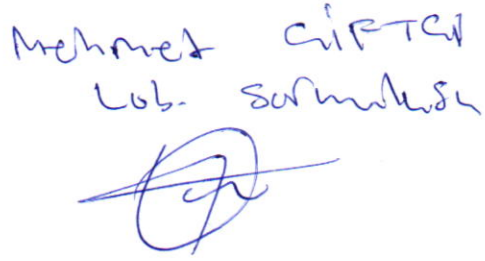 Mehmet ÇİFTÇİ
Lab. Sorumlusu